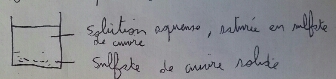 Solution aqueuse, saturée en sulfate
de cuivre
Sulfate de cuivre solide